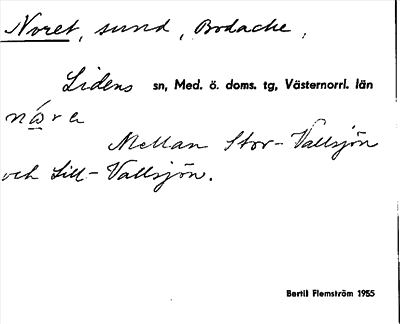 Noret, sund, Bodacke,
Lidens sn, Med. ö. doms. tg, Västernorrl. län
nó̲re
Mellan Stor-Vallsjön
och Lill-Vallsjön.
Bertil Flemström 1955